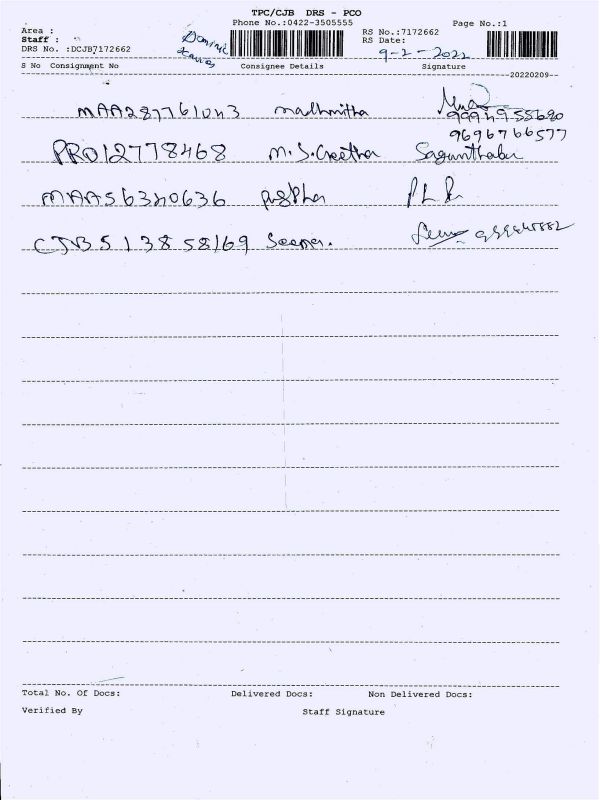 TPC/CJB DRS - PCO
Phone No.:0422-3505555 Page No.:1
Area : RS No.:7172662
Staff : Dominic RS Date: 9-2-2022
DRS No. :DCJB7172662
S No Consignment No Consignee Details Signature
--20220209--
MAA287761043 madhmitha
9994955680
9696766577
PRO12778468 M.S.Geetha Sagunthala
MAA56340636 pushpha P L R
CJB513858169
Total No. Of Docs: Delivered Docs: Non Delivered Docs:
Verified By Staff Signature